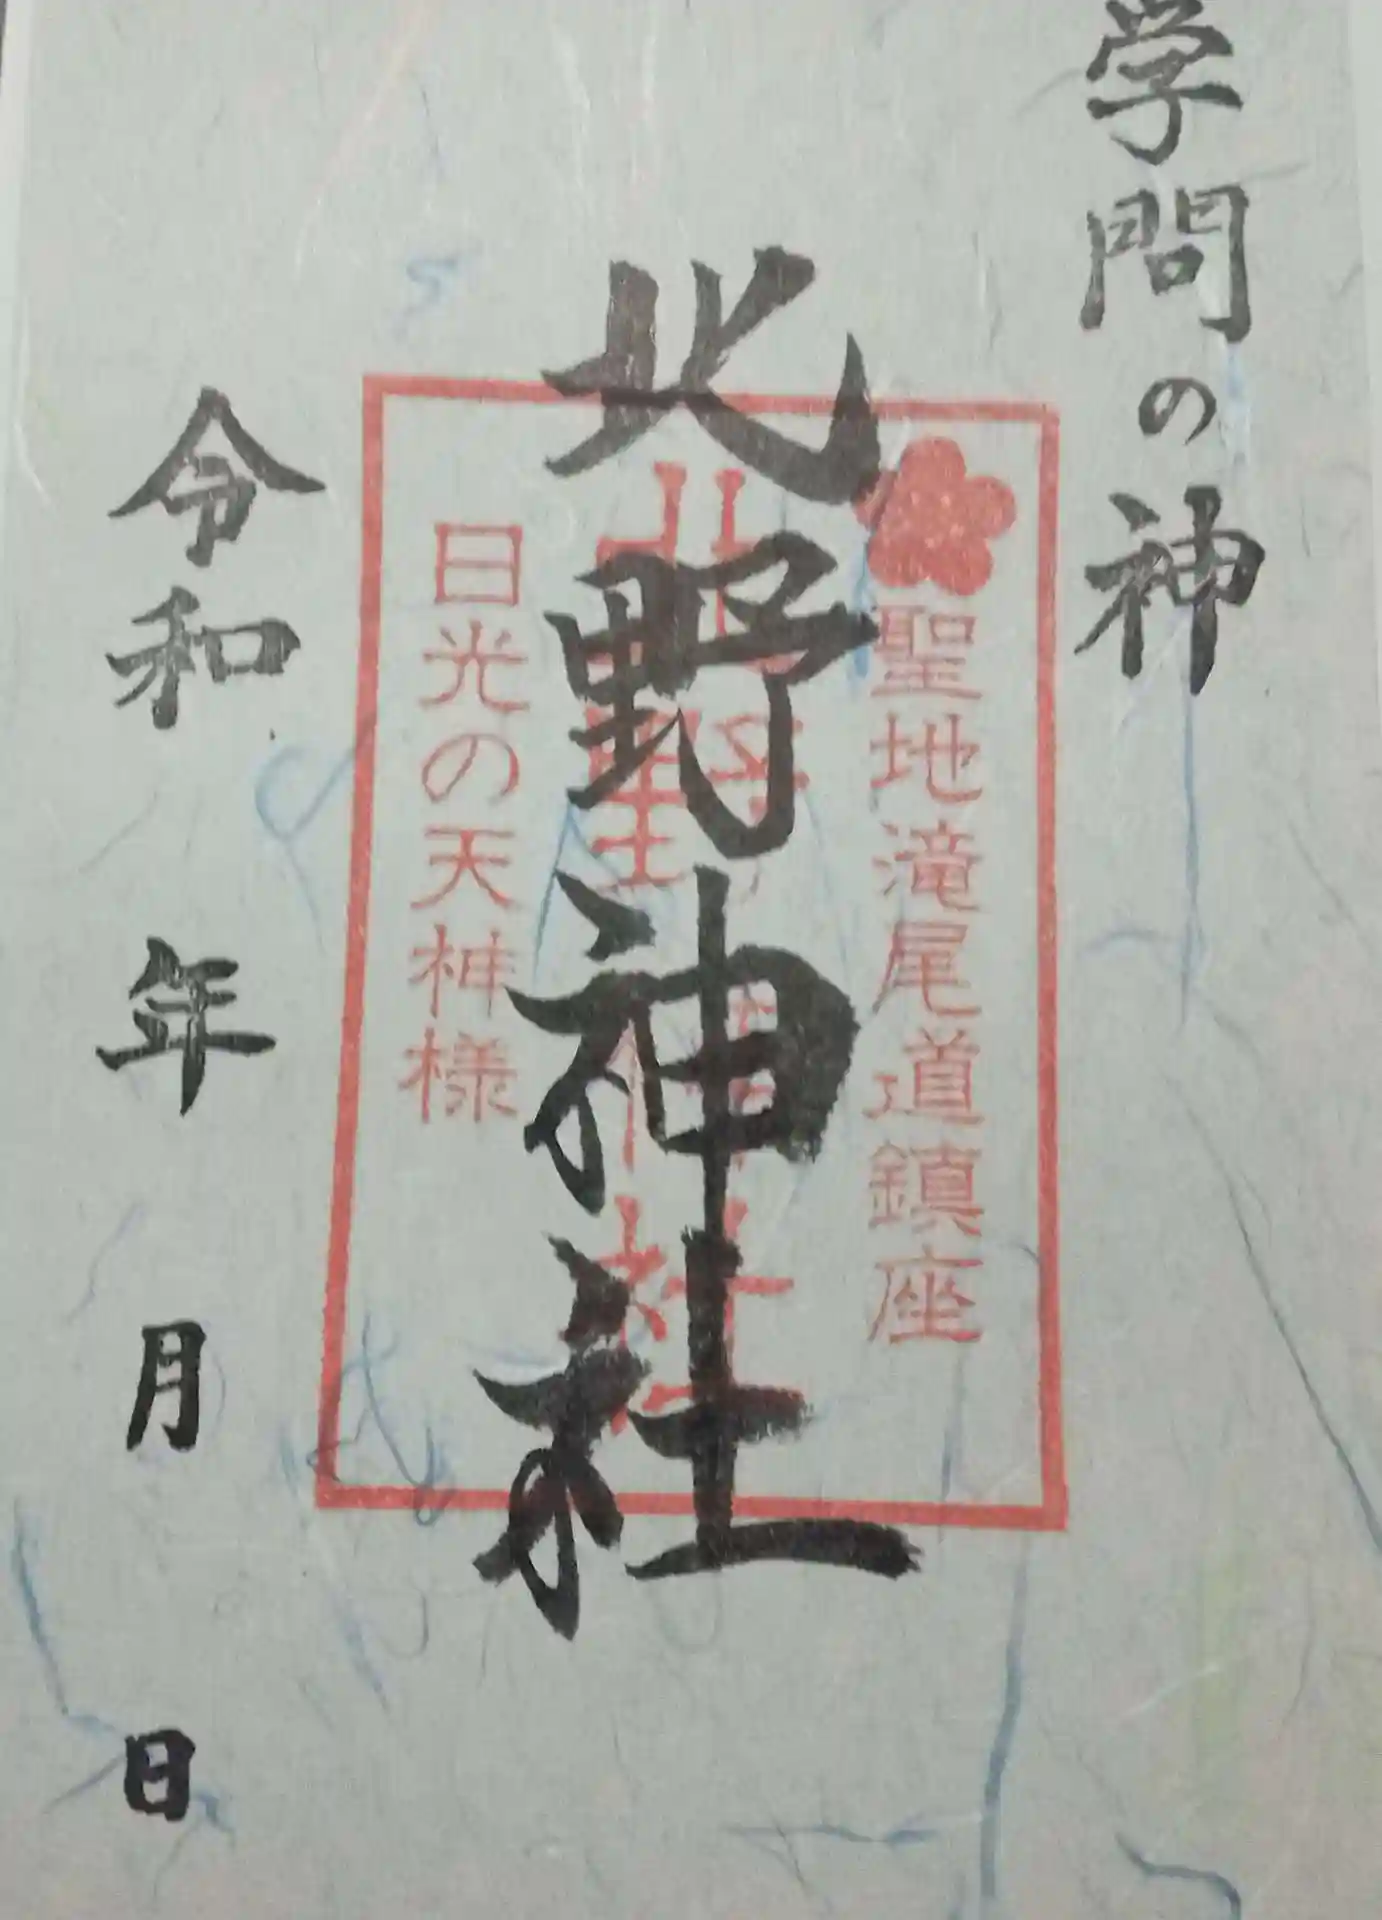 学問の神
聖地滝尾道鎮座
北野神社
北野神社
日光の天神様
令和 年 月 日